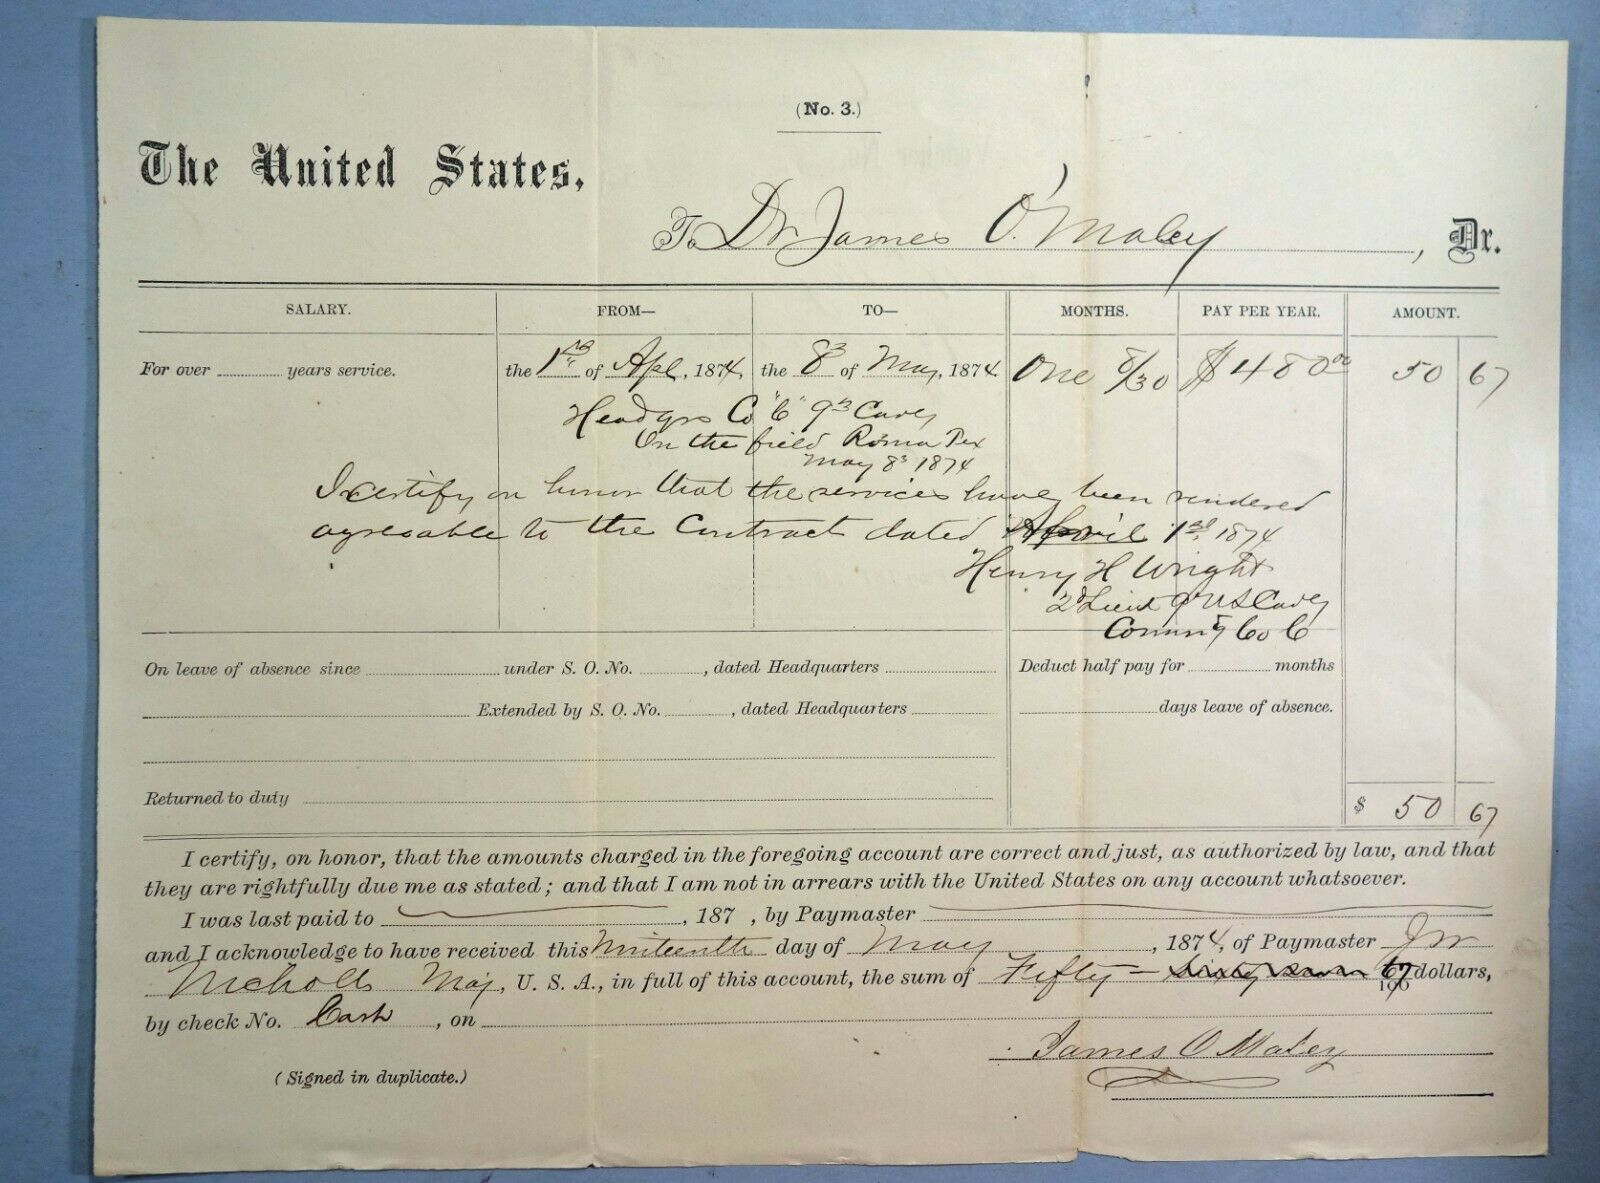 (No. 3.)
The United States,
To Dr James O'Maley, Dr.
SALARY. FROM— TO— MONTHS. PAY PER YEAR. AMOUNT.
For over years service. the 1st of Apl, 1874, the 8th of May, 1874. One 8/30 $480.00 50 67
Headqrs Co "C" 9th Cavy
On the field Roma Tex
May 8th 1874
I certify on honor that the services have been rendered
agreeable to the Contract dated April 1st 1874
Henry H Wright
2d Lieut 9th U S Cavy
Comm'g Co C
On leave of absence since under S. O. No. , dated Headquarters Deduct half pay for months
Extended by S. O. No. , dated Headquarters days leave of absence.
Returned to duty
$ 50 67
I certify, on honor, that the amounts charged in the foregoing account are correct and just, as authorized by law, and that
they are rightfully due me as stated; and that I am not in arrears with the United States on any account whatsoever.
I was last paid to , 187 , by Paymaster
and I acknowledge to have received this Nineteenth day of May , 1874, of Paymaster
Nicholls Maj, U. S. A., in full of this account, the sum of Fifty — 67/100 dollars,
by check No. Cash , on
James O Maley
(Signed in duplicate.)